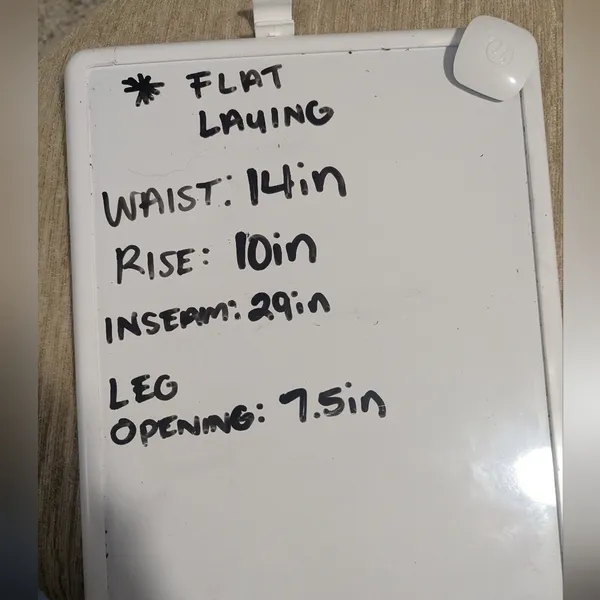 * FLAT
LAYING
WAIST: 14in
RISE: 10in
INSEAM: 29in
LEG
OPENING: 7.5in